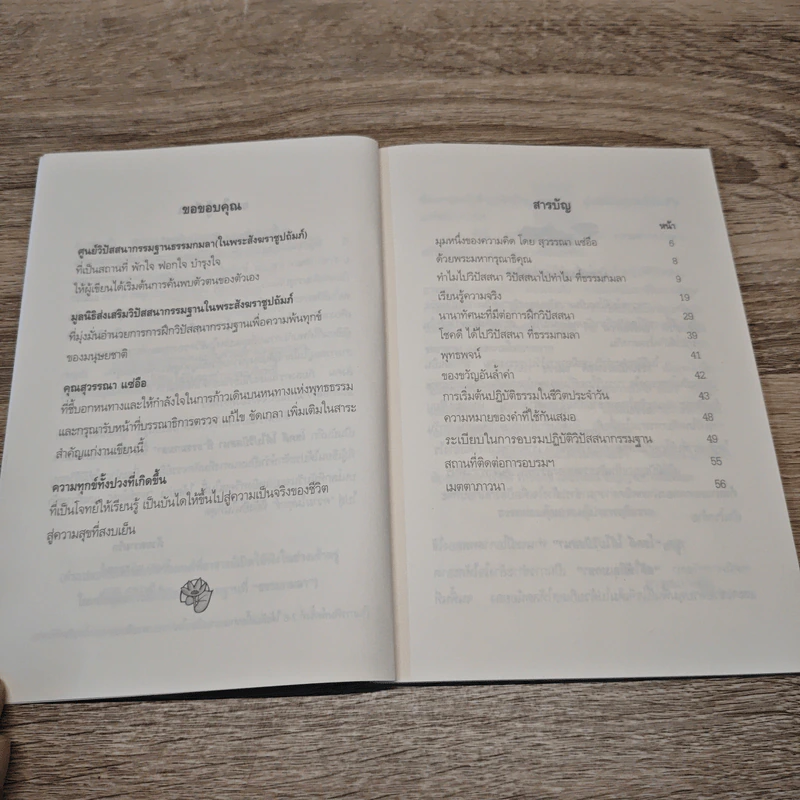 ขอขอบคุณ
ศูนย์วิปัสสนากรรมฐานธรรมกมลา(ในพระสังฆราชูปถัมภ์)
ที่เป็นสถานที่ พักใจ ฟอกใจ บำรุงใจ
ให้ผู้เขียนได้เริ่มต้นการค้นพบตัวตนของตัวเอง
มูลนิธิส่งเสริมวิปัสสนากรรมฐานในพระสังฆราชูปถัมภ์
ที่มุ่งมั่นอำนวยการการฝึกวิปัสสนากรรมฐานเพื่อความพ้นทุกข์
ของมนุษยชาติ
คุณสุวรรณา แซ่อือ
ที่ชี้บอกหนทางและให้กำลังใจในการก้าวเดินบนหนทางแห่งพุทธธรรม
และกรุณารับหน้าที่บรรณาธิการตรวจ แก้ไข ขัดเกลา เพิ่มเติมในสาระ
สำคัญแก่งานเขียนนี้
ความทุกข์ทั้งปวงที่เกิดขึ้น
ที่เป็นโจทย์ให้เรียนรู้ เป็นบันไดให้ขึ้นไปสู่ความเป็นจริงของชีวิต
สู่ความสุขที่สงบเย็น
สารบัญ
หน้า
มุมหนึ่งของความคิด โดย สุวรรณา แซ่อือ 6
ด้วยพระมหากรุณาธิคุณ 8
ทำไมไปวิปัสสนา วิปัสสนาไปทำไม ที่ธรรมกมลา 9
เรียนรู้ความจริง 19
นานาทัศนะที่มีต่อการฝึกวิปัสสนา 29
โชคดี ได้ไปวิปัสสนา ที่ธรรมกมลา 39
พุทธพจน์ 41
ของขวัญอันล้ำค่า 42
การเริ่มต้นปฏิบัติธรรมในชีวิตประจำวัน 43
ความหมายของคำที่ใช้กันเสมอ 48
ระเบียบในการอบรมปฏิบัติวิปัสสนากรรมฐาน 49
สถานที่ติดต่อการอบรมฯ 55
เมตตาภาวนา 56